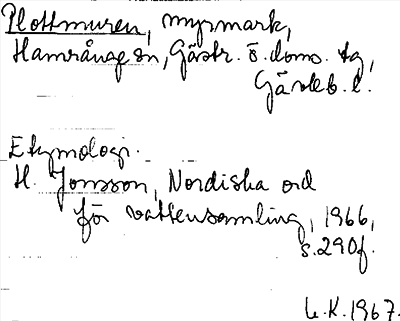 Plottmuren, myrmark,
Hamrånge sn, Gästr. ö. doms. tg,
Gävleb. l.
Etymologi.
H. Jonsson, Nordiska ord
för vattensamling, 1966,
s. 290f.
L.K. 1967.